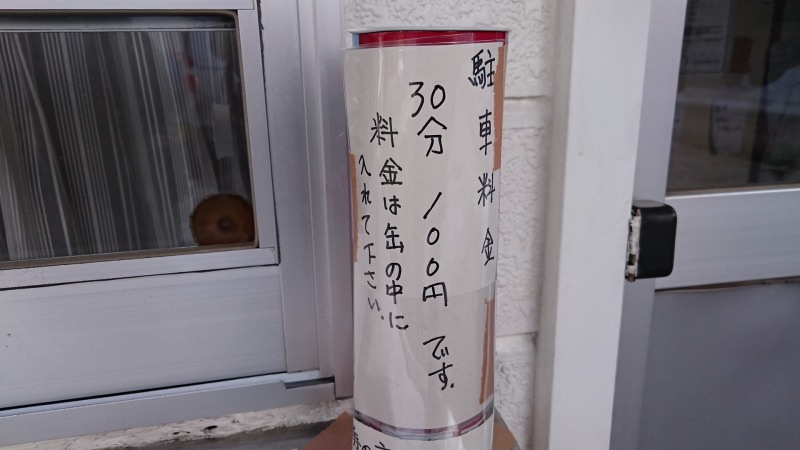 駐車料金
30分 100円です.
料金は缶の中に
入れて下さい.